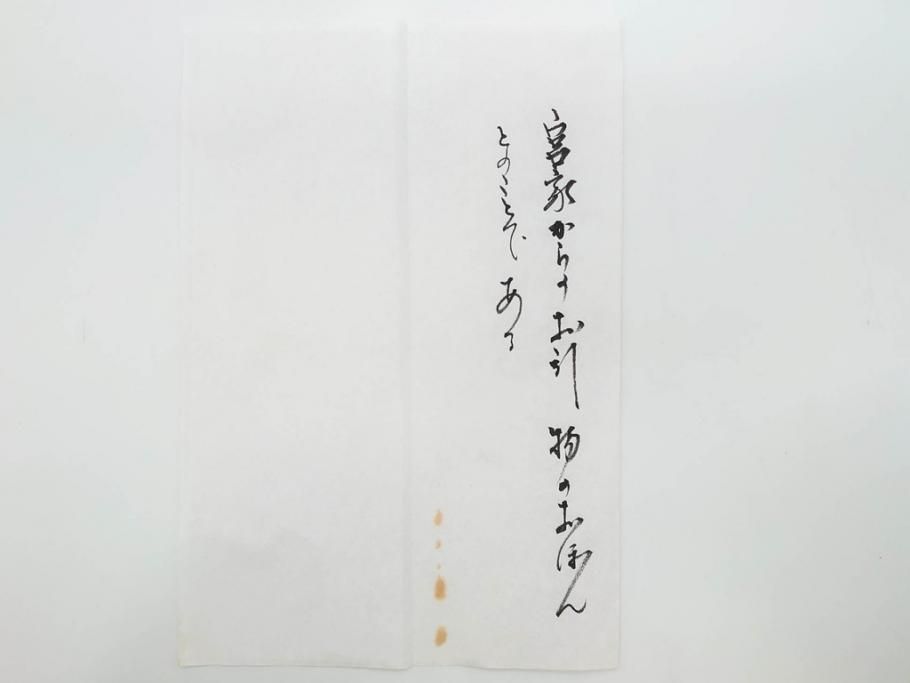 宮家からのお引物のおぼん
とのことである